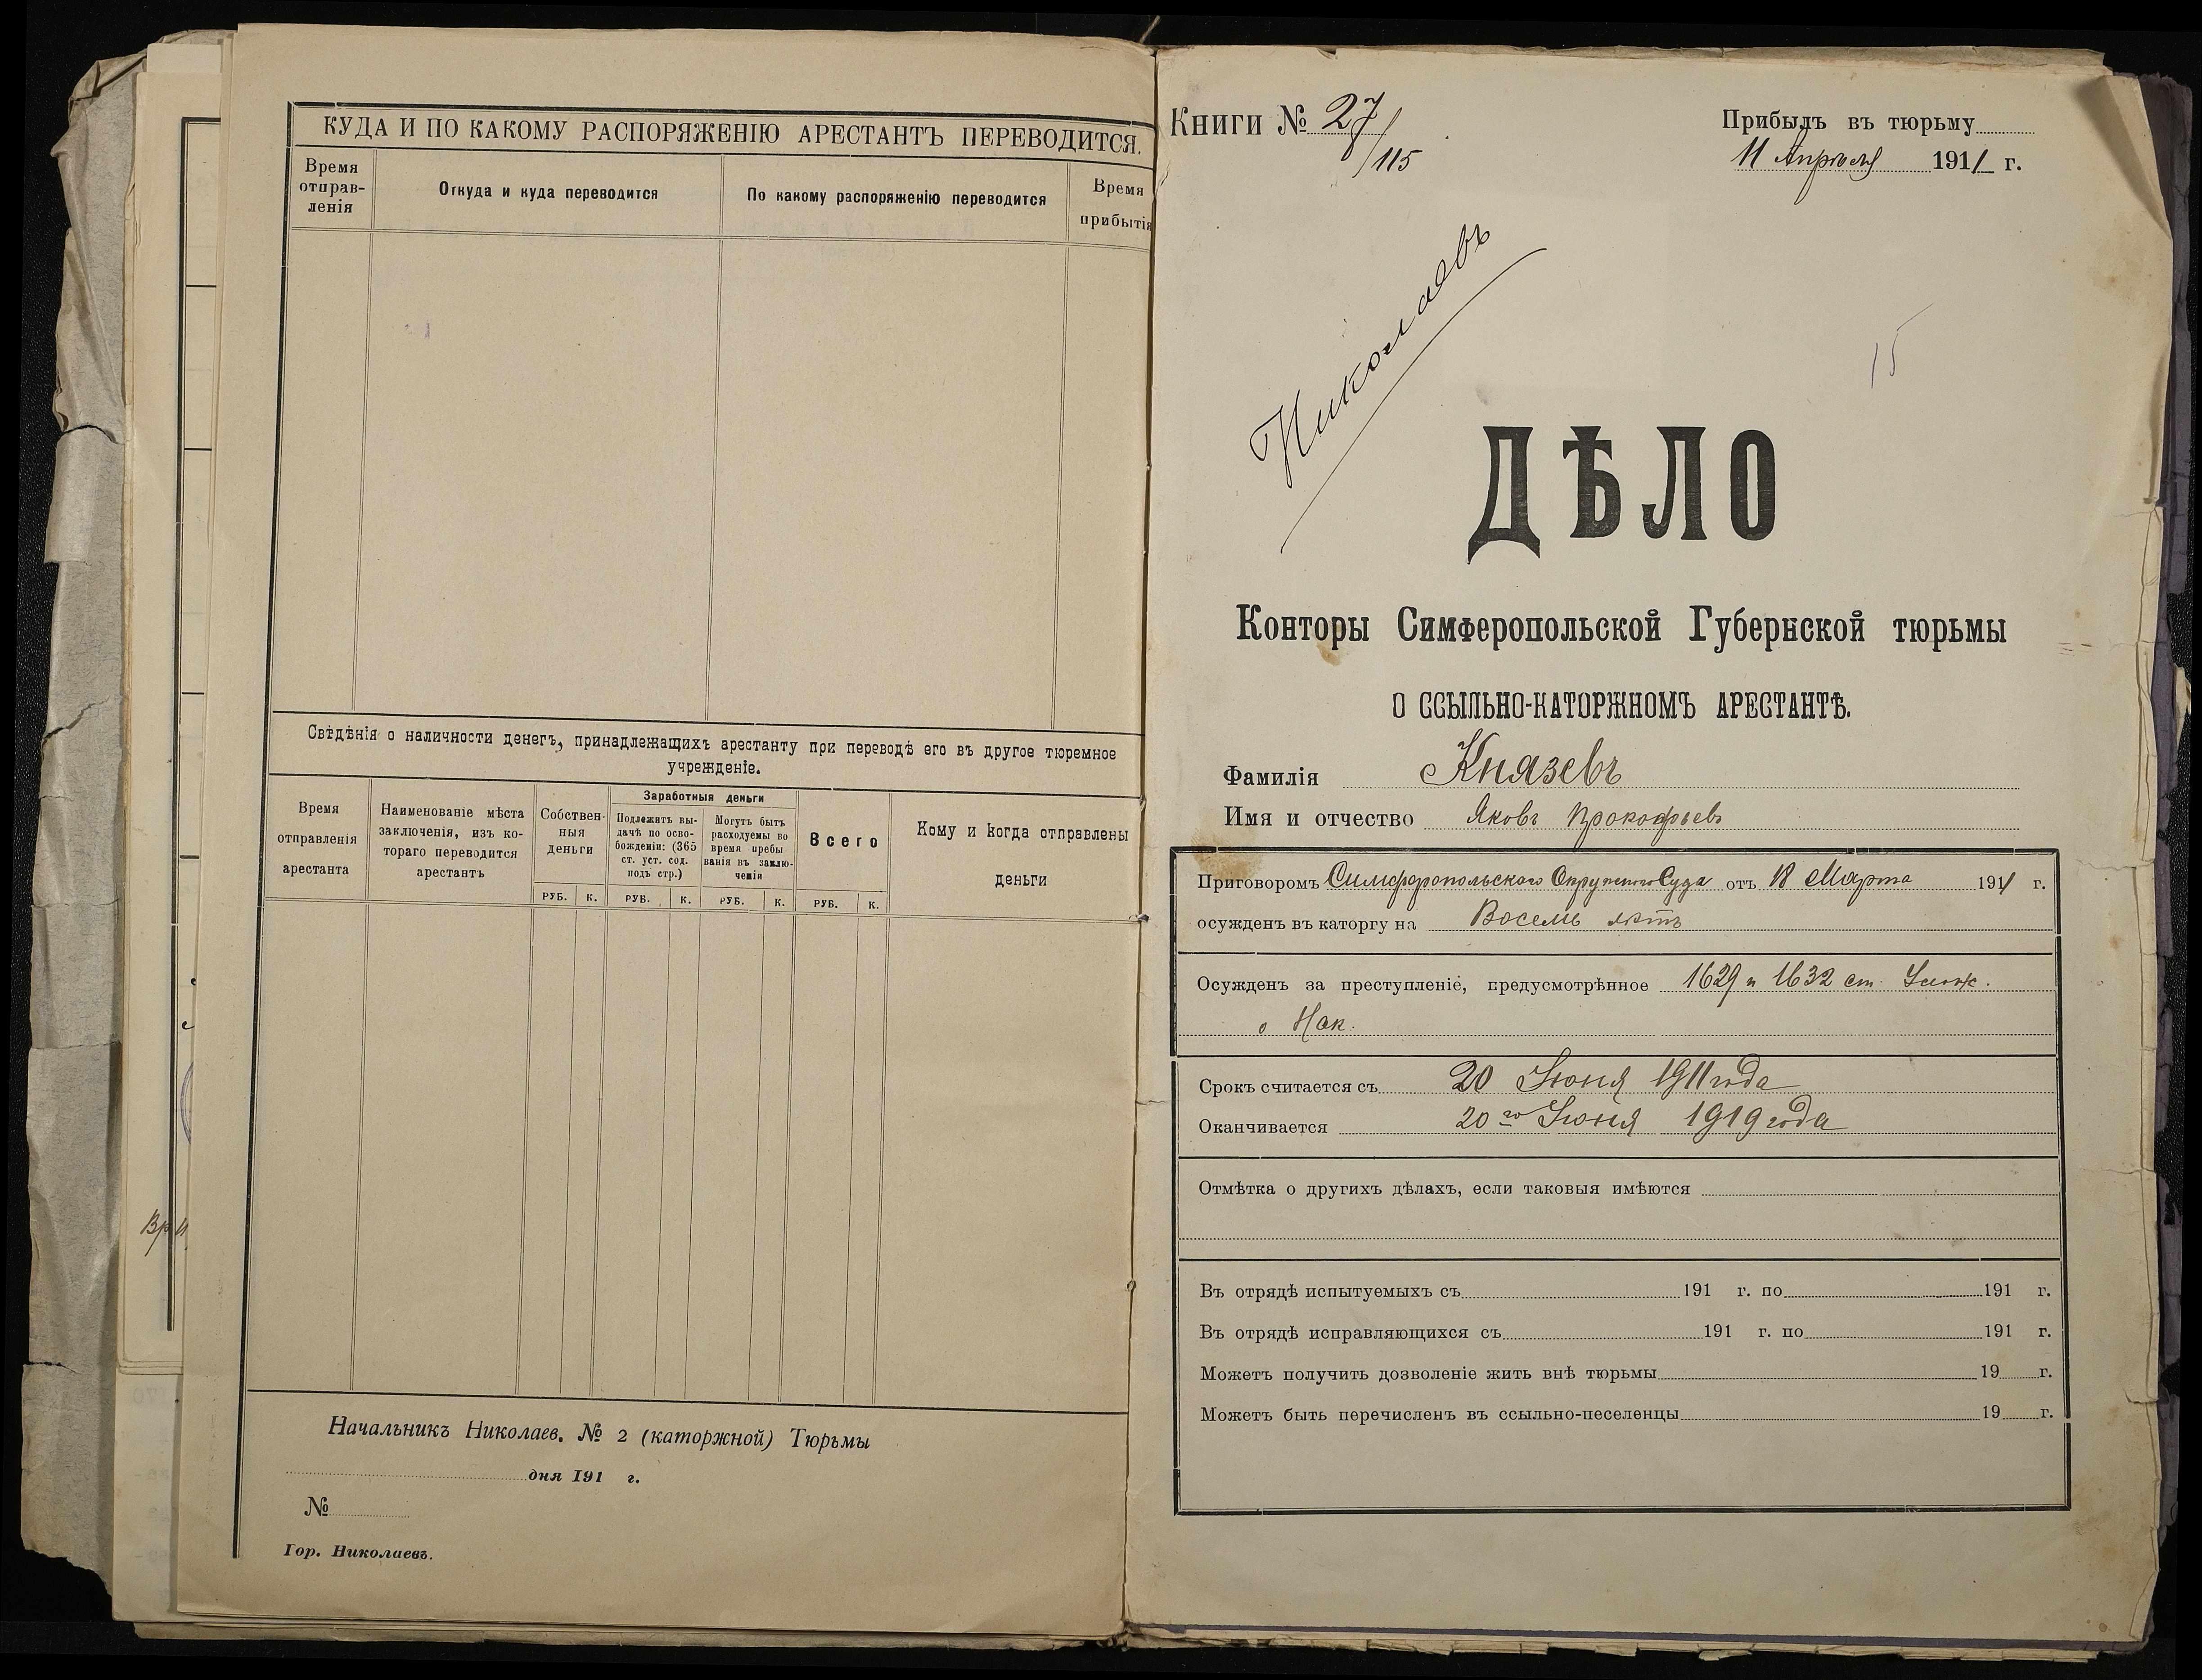 КУДА И ПО КАКОМУ РАСПОРЯЖЕНІЮ АРЕСТАНТЪ ПЕРЕВОДИТСЯ.
Время отправ-
ленія
Откуда и куда переводится
По какому распоряженію переводится
Время
прибытія
Свѣдѣнія о наличности денегъ, принадлежащихъ арестанту при переводѣ его въ другое тюремное
учрежденіе.
Время
отправленія
арестанта
Наименованіе мѣста
заключенія, изъ ко-
тораго переводится
арестантъ
Собствен-
ныя
деньги
Заработныя деньги
Подлежитъ вы-
дачѣ по осво-
божденіи: (365
ст. уст. сод.
подъ стр.)
Могутъ быть
расходуемы во
время пребы
ванія въ заклю-
ченія
Всего
Кому и когда отправлены
деньги
РУБ. К. РУБ. К. РУБ. К. РУБ. К.
Начальникъ Николаев. № 2 (каторжной) Тюрьмы
дня 191 г.
№
Гор. Николаевъ.
Книги № 27/115
Прибылъ въ тюрьму
11 Апрѣля 1911 г.
Николаевъ
15
ДѢЛО
Конторы Симферопольской Губернской тюрьмы
О ССЫЛЬНО-КАТОРЖНОМЪ АРЕСТАНТѢ.
Фамилія Князевъ
Имя и отчество Яковъ Прокофьевъ
Приговоромъ Симферопольскаго Окружного Суда отъ 18 Марта 1911 г.
осужденъ въ каторгу на Восемь лѣтъ
Осужденъ за преступленіе, предусмотрѣнное 1629 и 1632 ст. Улож.
о Нак.
Срокъ считается съ 20 Іюня 1911 года
Оканчивается 20го Іюня 1919 года
Отмѣтка о другихъ дѣлахъ, если таковыя имѣются
Въ отрядѣ испытуемыхъ съ 191 г. по 191 г.
Въ отрядѣ исправляющихся съ 191 г. по 191 г.
Можетъ получить дозволеніе жить внѣ тюрьмы 19 г.
Можетъ быть перечисленъ въ ссыльно-песеленцы 19 г.